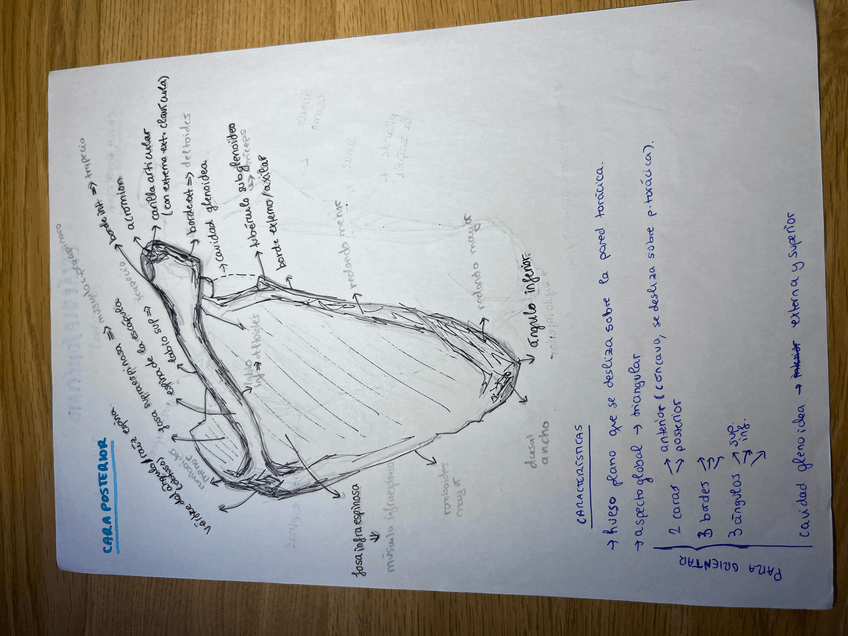 CARA POSTERIOR
borde int ⇒ trapecio
acromion
carilla articular
(con externa ext. clavícula)
borde ext ⇒ deltoides
→ cavidad glenoidea
tubérculo subglenoideo
⇒ tríceps
borde externo/axilar
redondo menor
redondo mayor
ángulo inferior
dorsal
ancho
romboides
mayor
fosa infraespinosa
⇓
músculo infraespinoso
fosa supraespinosa ⇒
espina de la escápula
labio sup ⇒ trapecio
labio
inf ⇒ deltoides
romboides
menor
CARACTERÍSTICAS
→ hueso plano que se desliza sobre la pared torácica.
→ aspecto global → triangular
PARA ORIENTAR
2 caras → anterior (cóncavo, se desliza sobre p. torácica).
→ posterior
3 bordes
3 ángulos → sup
→ inf.
cavidad glenoidea → externa y superior